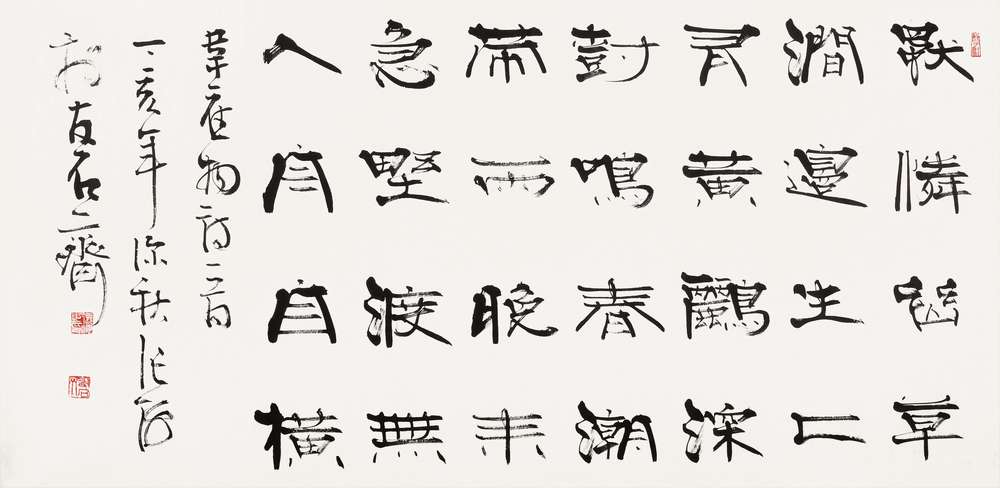 獨憐幽草
澗邊生上
有黃鸝深
樹鳴春潮
帶雨晚來
急野渡無
人舟自橫
韋應物詩一首
丁亥年深秋
友石齋